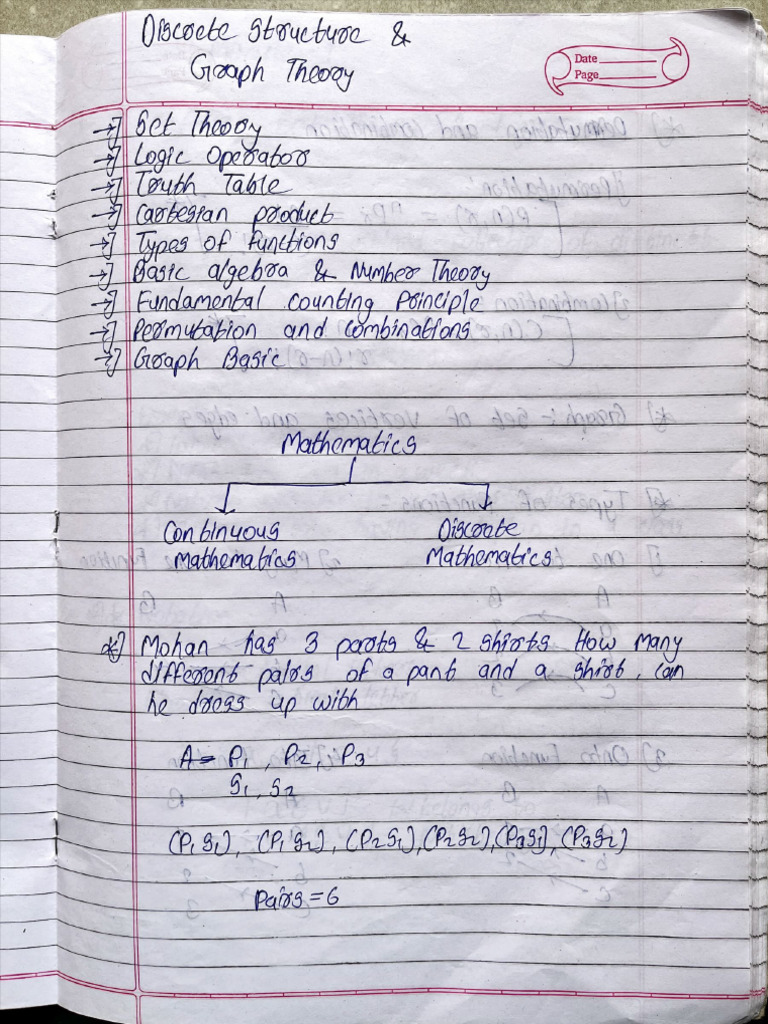 Discrete Structure &
Graph Theory
Date
Page
→] Set Theory
→] Logic Operator
→] Truth Table
→] Cartesian product
→] Types of functions
→] Basic algebra & Number Theory
→] Fundamental counting Principle
→] Permutation and combinations
→] Graph Basic
Mathematics
Continuous Discrete
Mathematics Mathematics
*] Mohan has 3 pants & 2 shirts How many
different pairs of a pant and a shirt, can
he dress up with
A = P1, P2, P3
S1, S2
(P1 S1), (P1 S2), (P2 S1), (P2 S2), (P3 S1), (P3 S2)
Pairs = 6